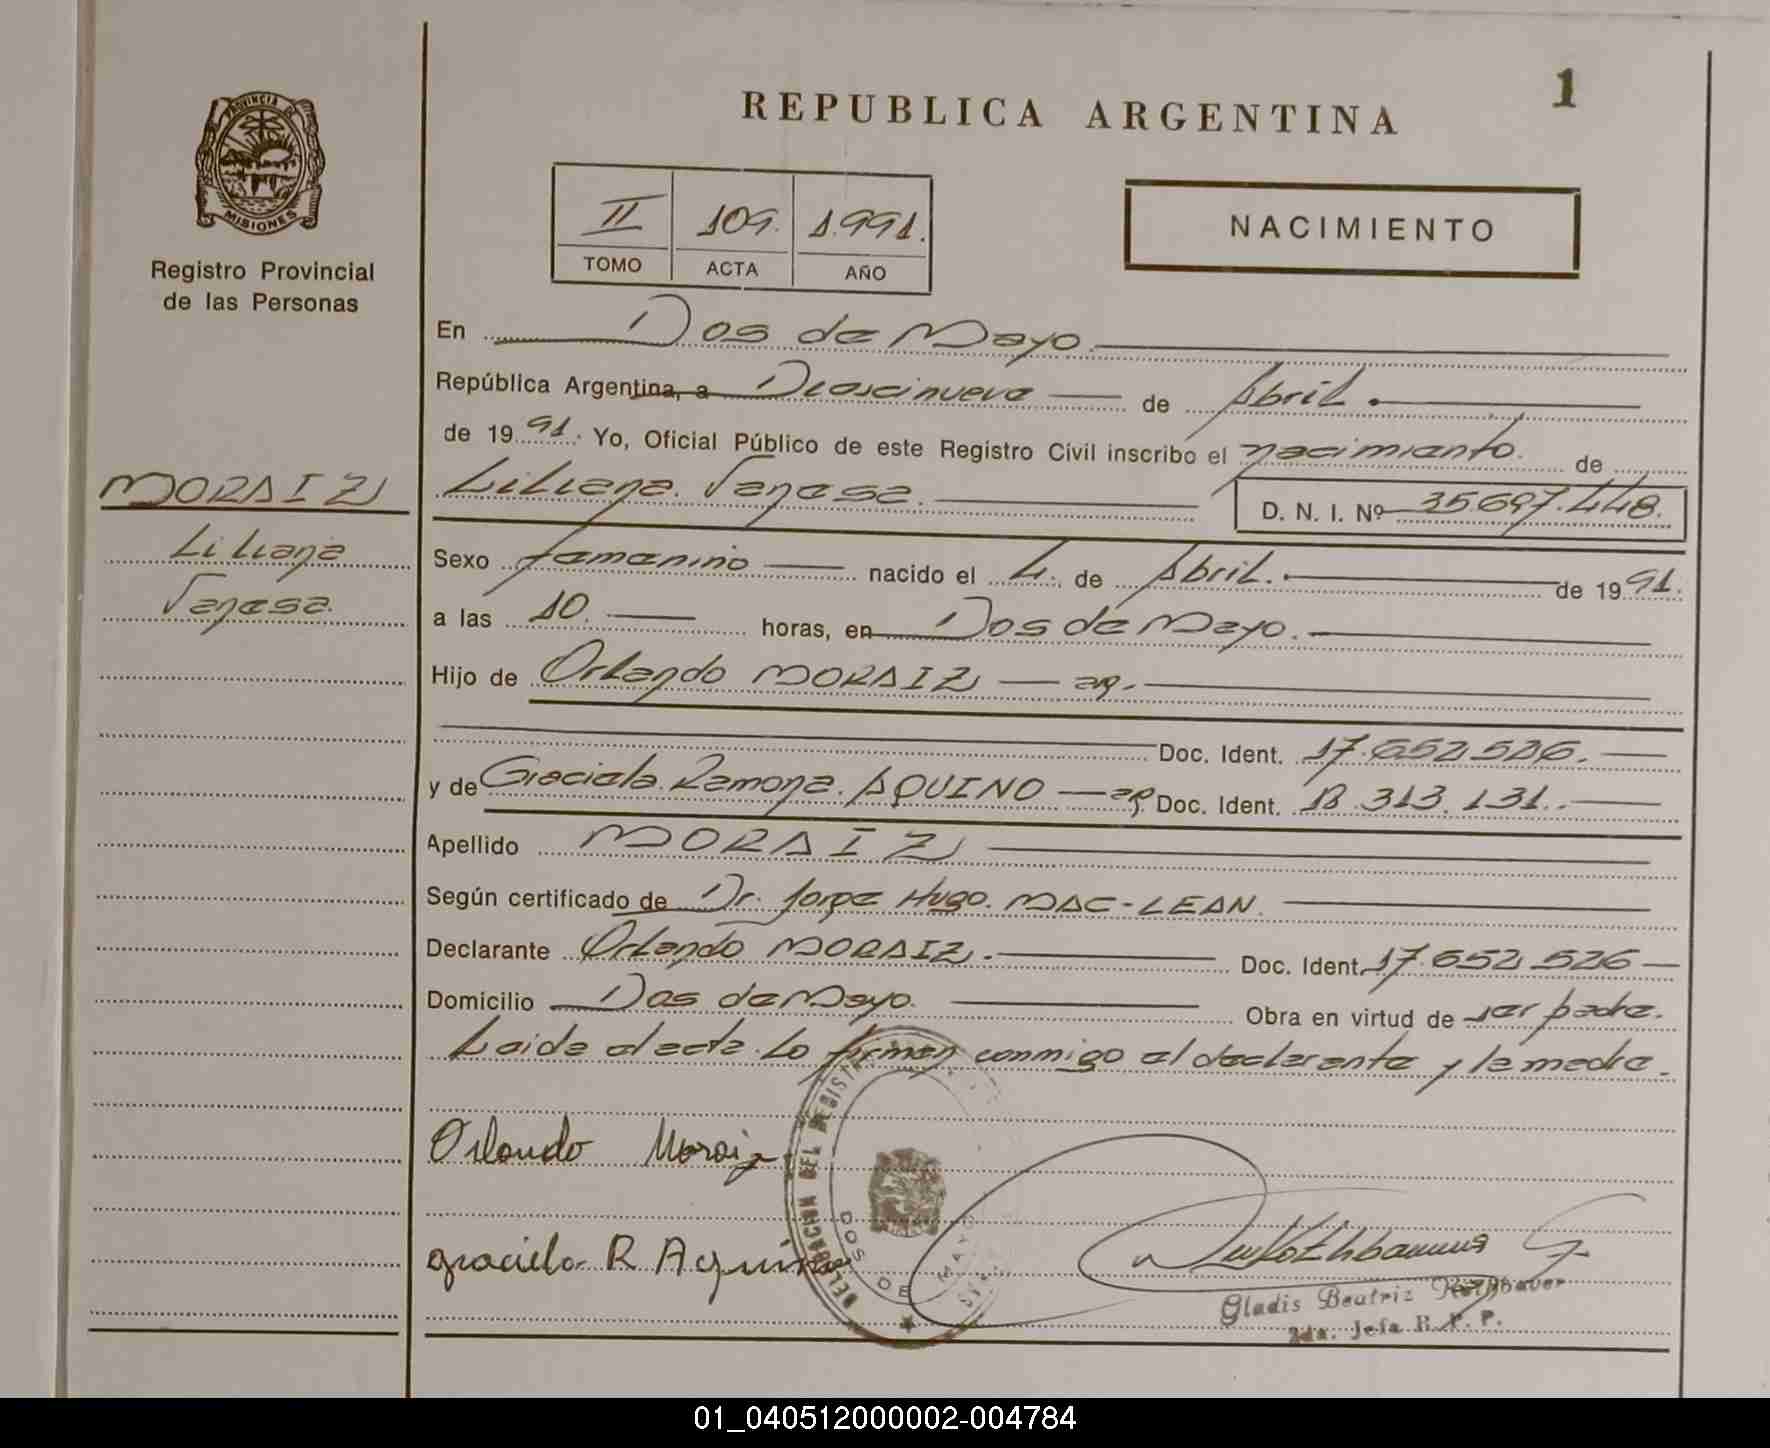 1
REPUBLICA ARGENTINA
PROVINCIA DE
MISIONES
Registro Provincial
de las Personas
II 109. 1.991.
TOMO ACTA AÑO
NACIMIENTO
En Dos de Mayo.
República Argentina, a Diescinueve de Abril.
de 1991. Yo, Oficial Público de este Registro Civil inscribo el nacimiento. de
MORAIZ
Liliana Vanesa.
D. N. I. Nº 35.697.448.
Liliana
Vanesa.
Sexo femenino nacido el 4. de Abril. de 1991.
a las 10. horas, en Dos de Mayo.
Hijo de Orlando MORAIZ - ar.
Doc. Ident. 17.652.526.
y de Graciela Ramona AQUINO - ar. Doc. Ident. 18.313.131.
Apellido MORAIZ
Según certificado de Dr. Jorge Hugo. MAC-LEAN.
Declarante Orlando MORAIZ. Doc. Ident. 17.652.526
Domicilio Dos de Mayo. Obra en virtud de ser padre.
Leida el acta. Lo firman conmigo el declarante y la madre.
Orlando Moraiz
DELEGACION DEL REGISTR
DOS DE MAYO
graciela R Aquino
Gladis Beatriz Rothbauer
2da. Jefa R. P. P.
01_040512000002-004784